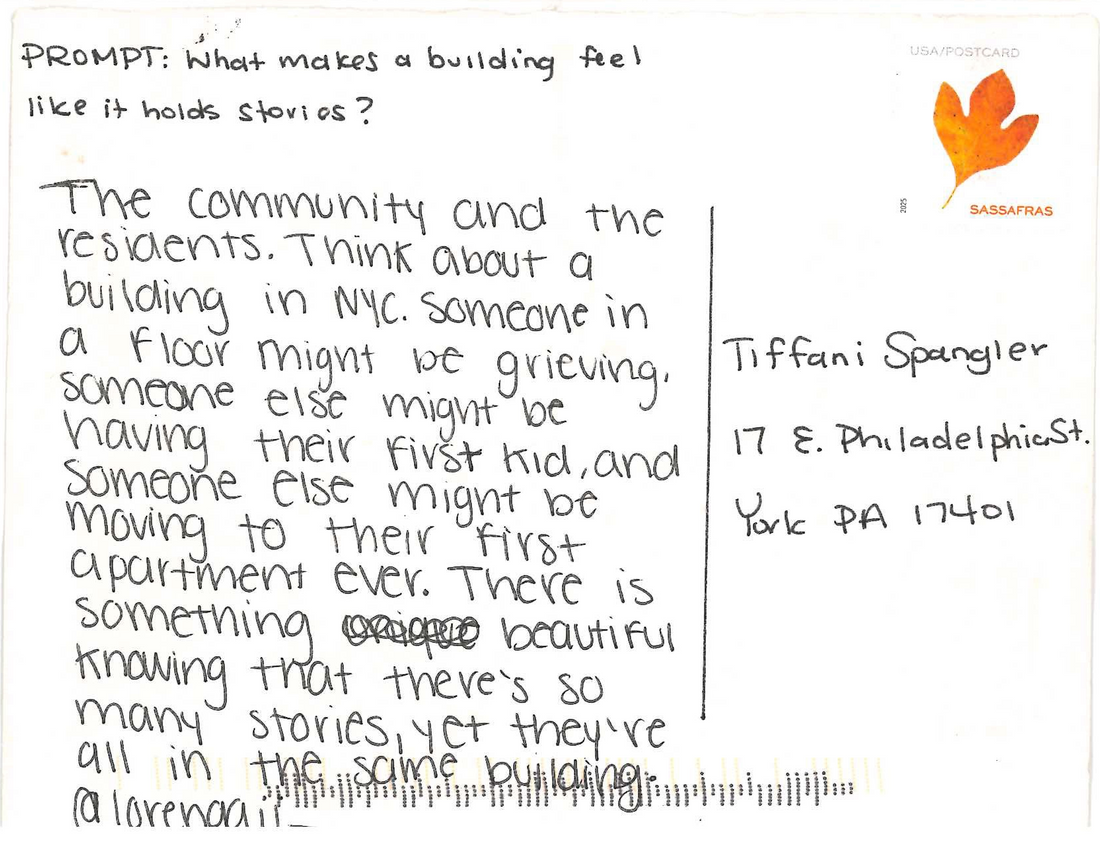 PROMPT: What makes a building feel
like it holds stories?
USA/POSTCARD
2025
SASSAFRAS
The community and the
residents. Think about a
building in NYC. Someone in
a floor might be grieving,
someone else might be
having their first kid, and
someone else might be
moving to their first
apartment ever. There is
something beautiful
knowing that there's so
many stories, yet they're
all in the same building.
Tiffani Spangler
17 E. Philadelphia St.
York PA 17401